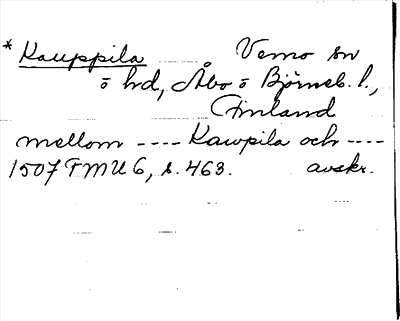 * Kauppila Vemo sn
o hd, Åbo o Björneb. l.,
Finland
mellom ---- Kawpila och ----
1507 FMU 6, s. 463. avskr.